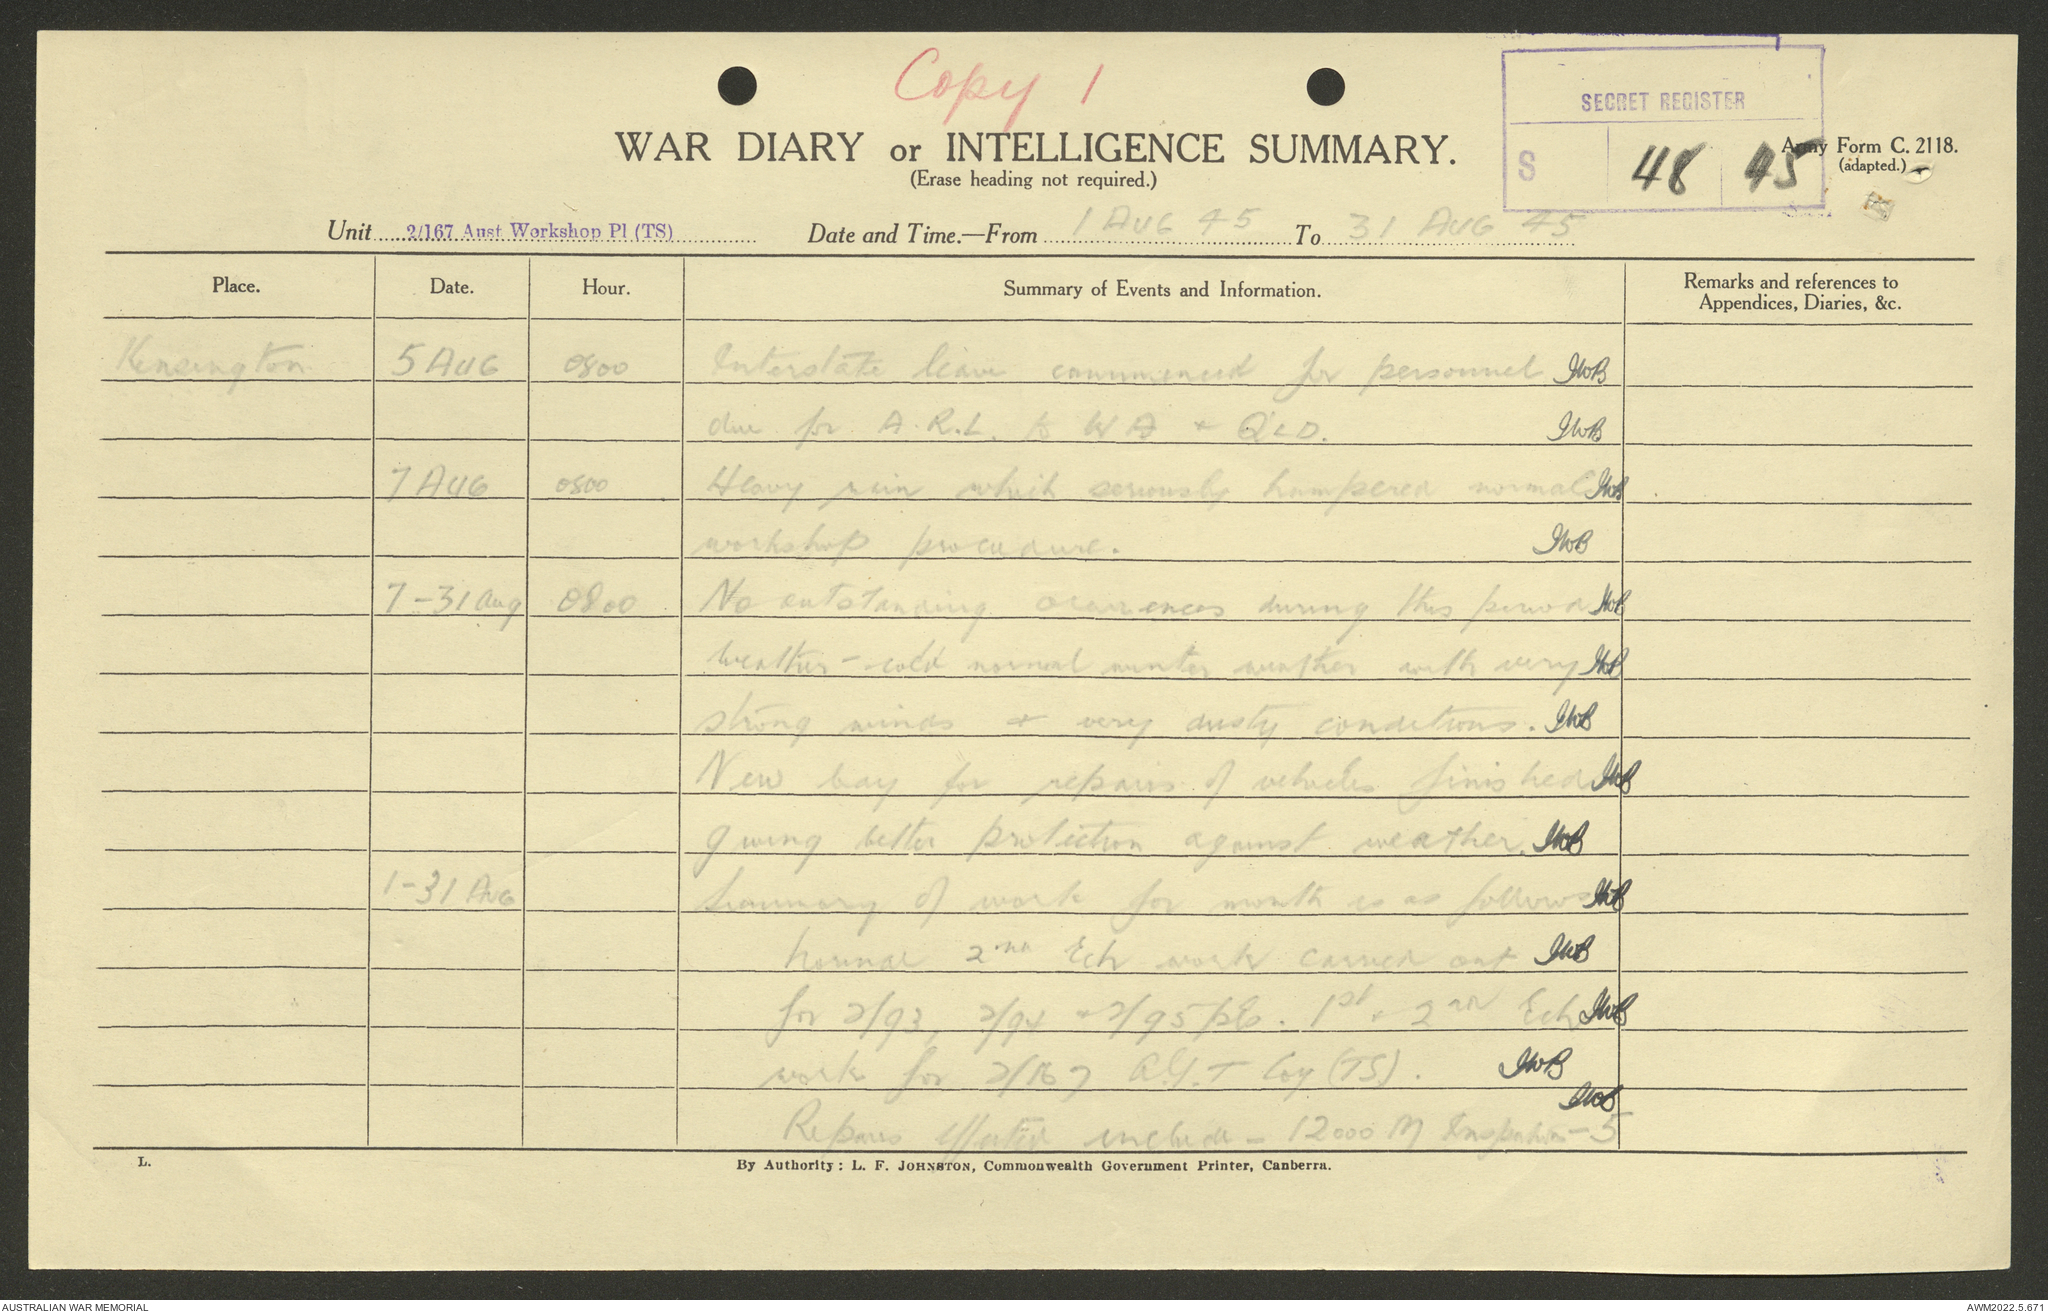 Copy 1
SECRET REGISTER
S 48 45
WAR DIARY or INTELLIGENCE SUMMARY.
Army Form C. 2118.
(adapted.)
(Erase heading not required.)
Unit 2/167 Aust Workshop Pl (TS) Date and Time.—From 1 AUG 45 To 31 AUG 45
Place. Date. Hour. Summary of Events and Information. Remarks and references to
Appendices, Diaries, &c.
Kensington 5 AUG 0800 Interstate leave commenced for personnel IWB
due for A.R.L. to WA + QLD. IWB
7 AUG 0800 Heavy rain which seriously hampered normal IWB
workshop procedure. IWB
7-31 Aug 0800 No outstanding occurrences during this period IWB
Weather - cold normal winter weather with very IWB
strong winds + very dusty conditions. IWB
New bay for repairs of vehicles finished IWB
giving better protection against weather. IWB
1-31 AUG Summary of work for month is as follows IWB
Normal 2nd Ech work carried out IWB
for 2/93, 2/94 + 2/95 pls. 1st + 2nd Ech IWB
work for 2/167 A.G.T Coy (TS). IWB
IWB
Repairs effected include - 12000 M Inspection - 5
L. By Authority: L. F. JOHNSTON, Commonwealth Government Printer, Canberra.
AUSTRALIAN WAR MEMORIAL AWM2022.5.671